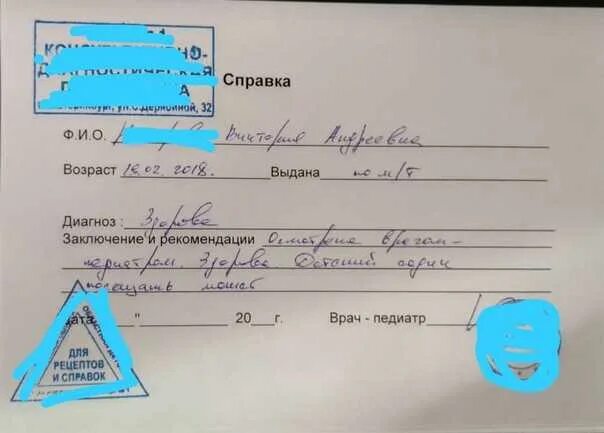 КОНСУЛЬТАТИВНО-
ДИАГНОСТИЧЕСКАЯ
ул. С.Дерябиной, 32
Справка
Ф.И.О. Виктория Андреевна
Возраст 19.02.2018. Выдана по м/т
Диагноз : Здорова
Заключение и рекомендации Осмотрена врачом-
педиатром. Здорова Детский садик
посещать может
Дата "____" 20___г. Врач - педиатр
ДЛЯ
РЕЦЕПТОВ
И СПРАВОК